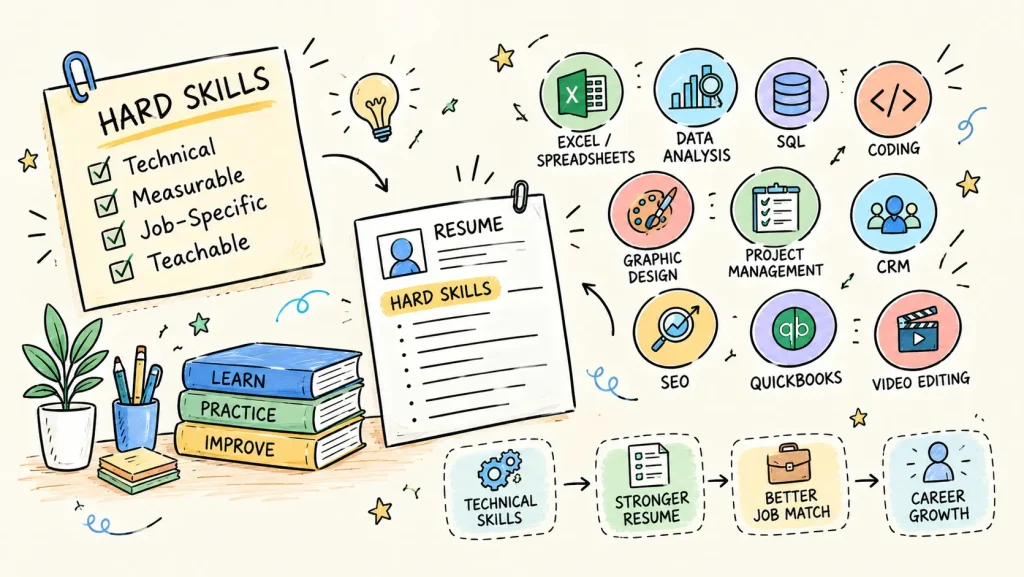 HARD SKILLS
Technical
Measurable
Job-Specific
Teachable
RESUME
HARD SKILLS
LEARN
PRACTICE
IMPROVE
X
EXCEL /
SPREADSHEETS
DATA
ANALYSIS
SQL
</>
CODING
GRAPHIC
DESIGN
PROJECT
MANAGEMENT
CRM
SEO
qb
QUICKBOOKS
VIDEO EDITING
TECHNICAL
SKILLS
STRONGER
RESUME
BETTER
JOB MATCH
CAREER
GROWTH